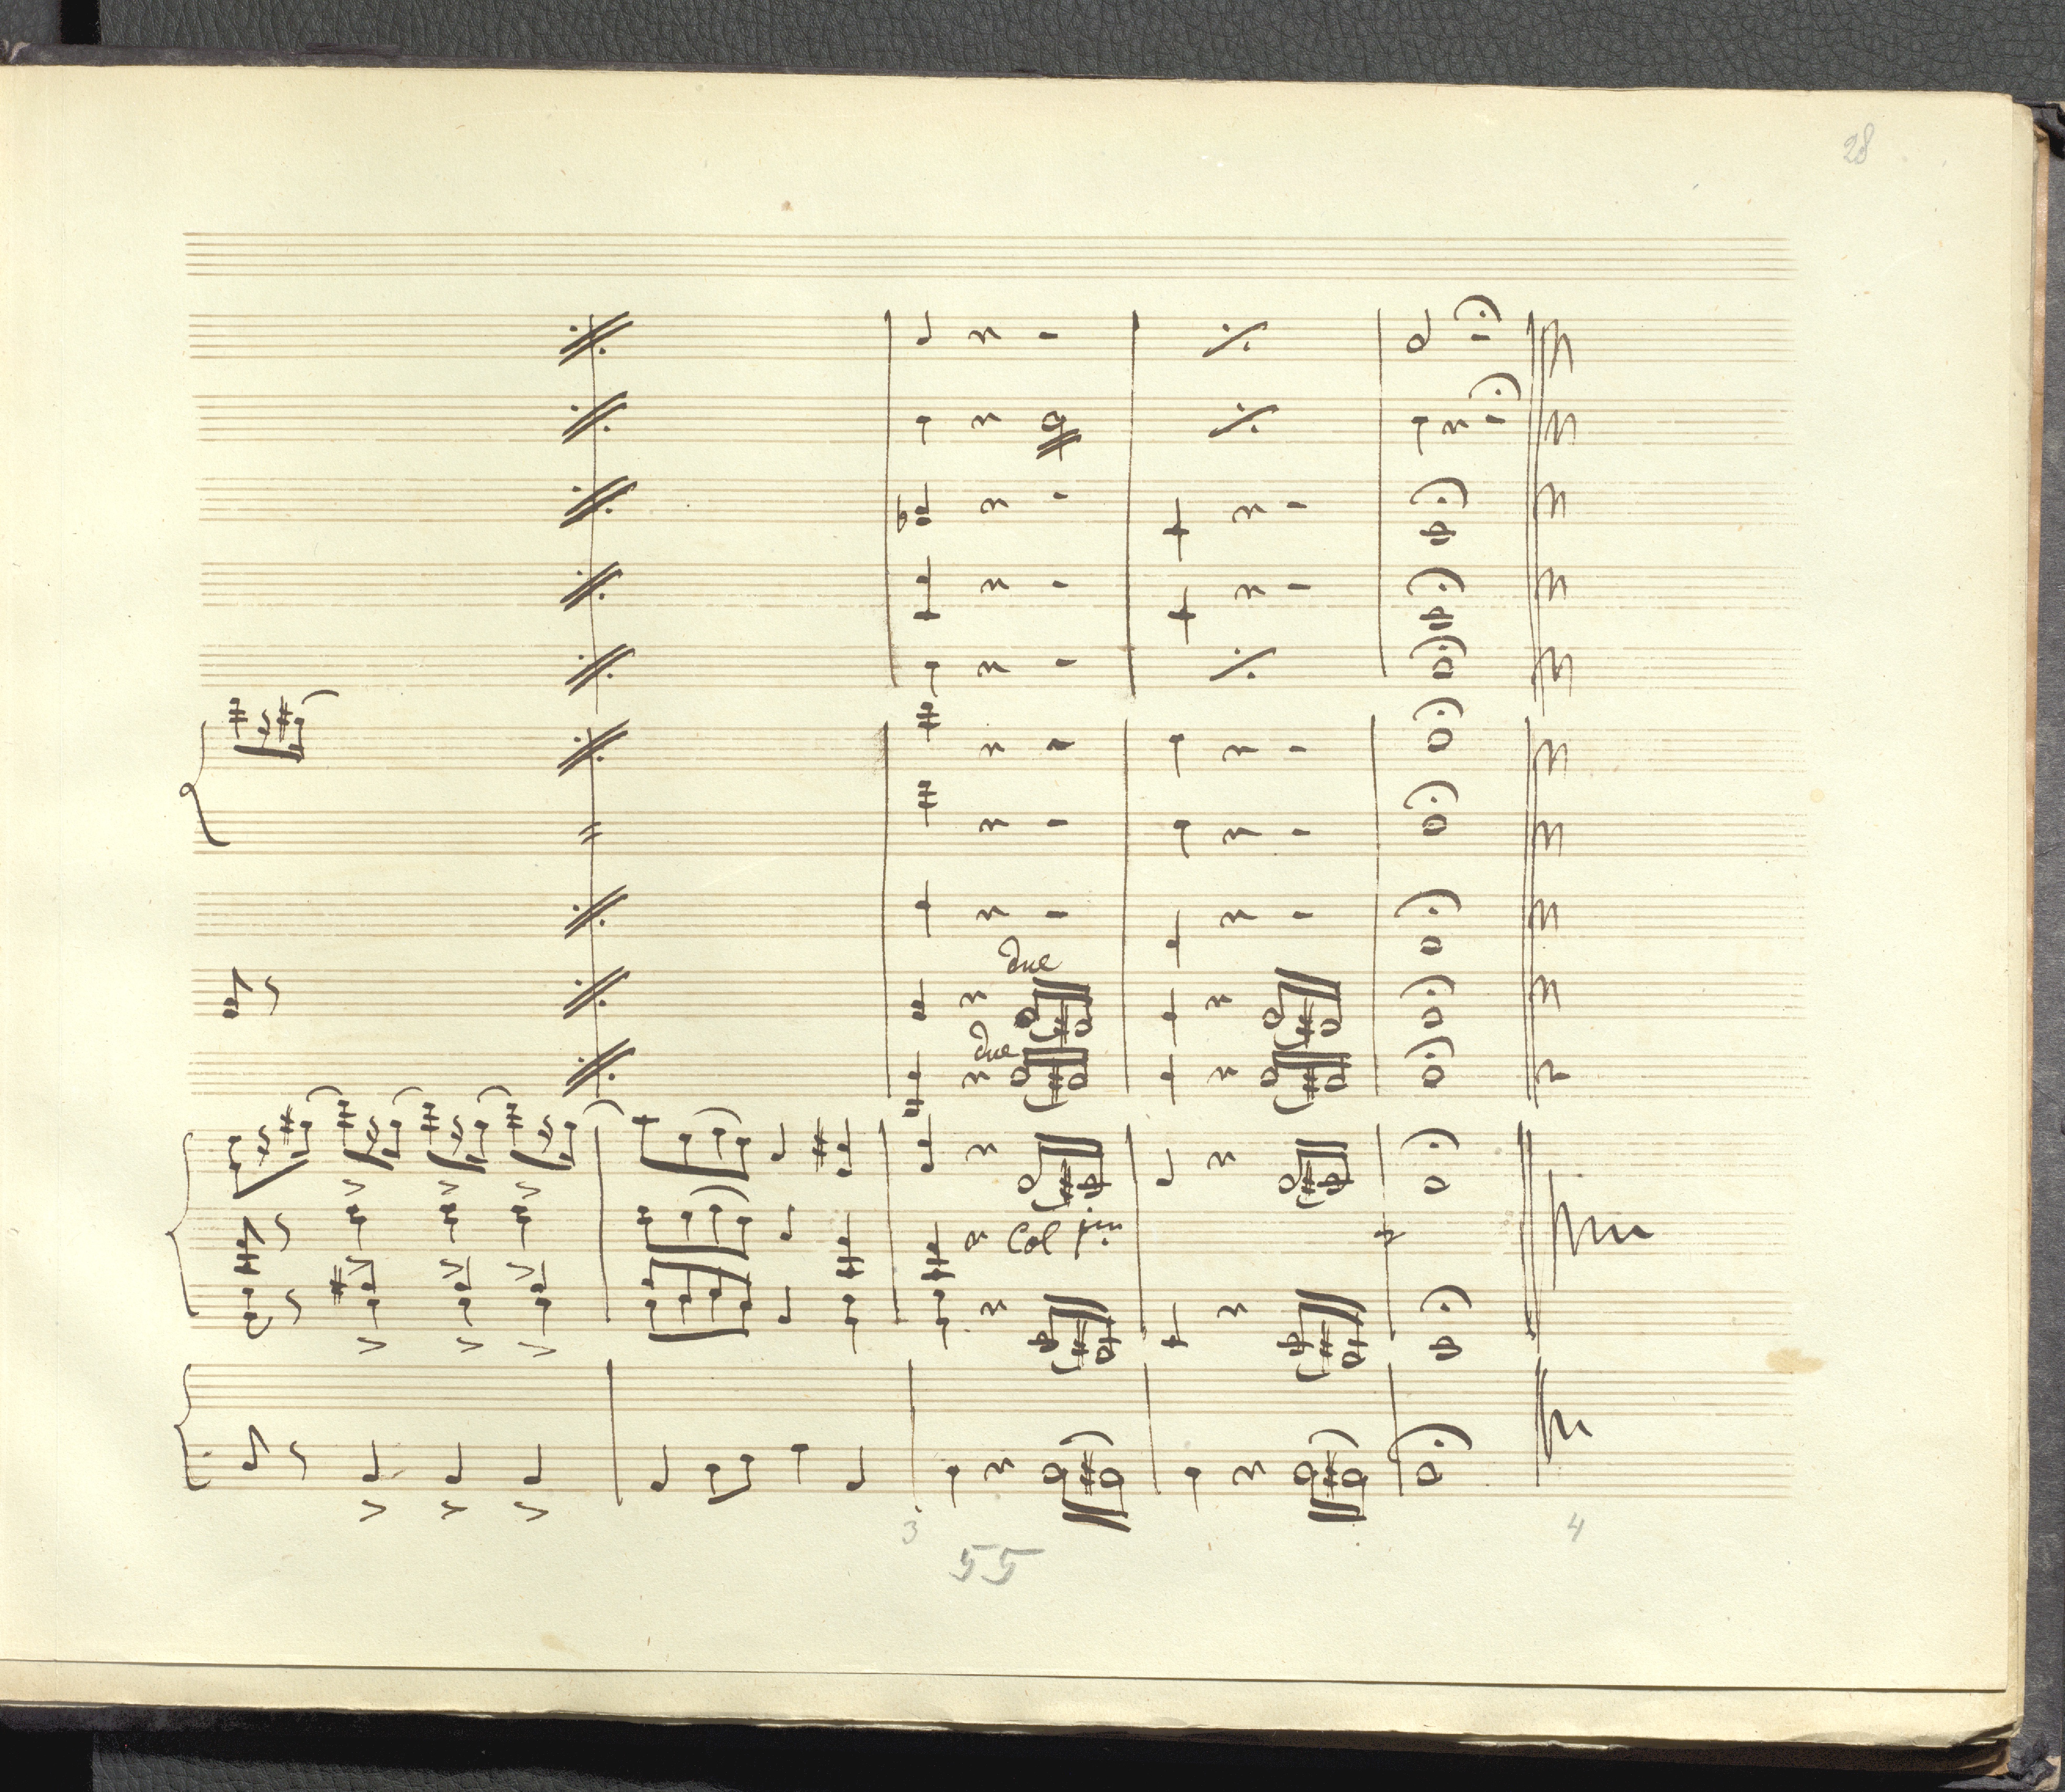 28
due
due
Col pmo
3
4
55